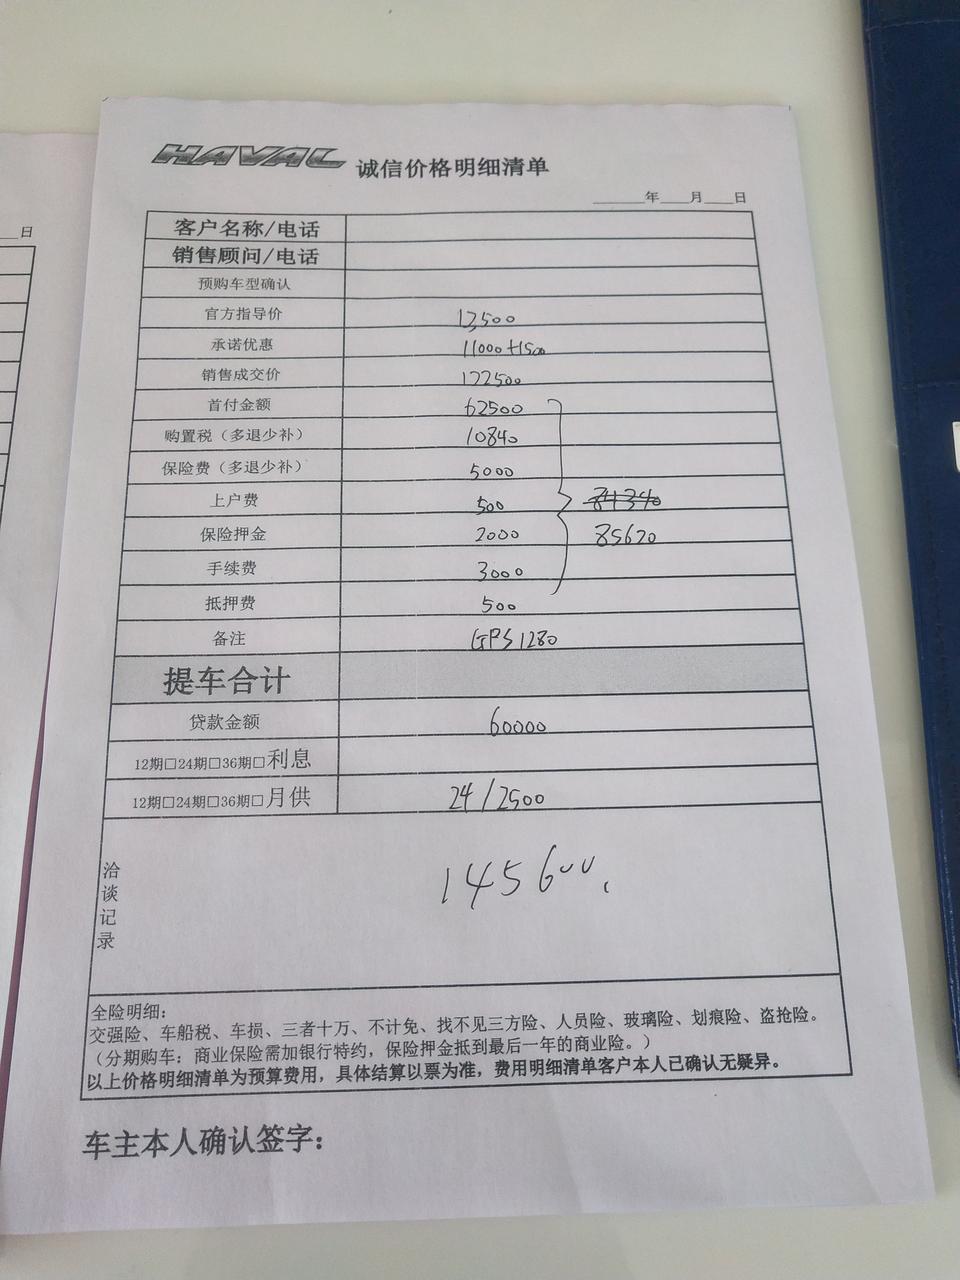 日
HAVAL 诚信价格明细清单
____年____月____日
客户名称/电话
销售顾问/电话
预购车型确认
官方指导价 13500
承诺优惠 11000+1500
销售成交价 122500
首付金额 62500
购置税（多退少补） 10840
保险费（多退少补） 5000
上户费 500 84340
保险押金 2000 85620
手续费 3000
抵押费 500
备注 GPS1280
提车合计
贷款金额 60000
12期□24期□36期□利息
12期□24期□36期□月供 24/2500
洽谈记录 145600
全险明细：
交强险、车船税、车损、三者十万、不计免、找不见三方险、人员险、玻璃险、划痕险、盗抢险。
（分期购车：商业保险需加银行特约，保险押金抵到最后一年的商业险。）
以上价格明细清单为预算费用，具体结算以票为准，费用明细清单客户本人已确认无疑异。
车主本人确认签字：